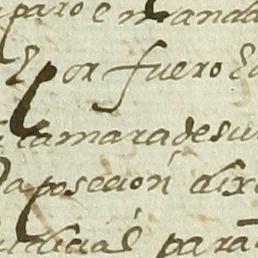 paro e manda
Por fuero E
camara de su
la posecion dix
udicial para